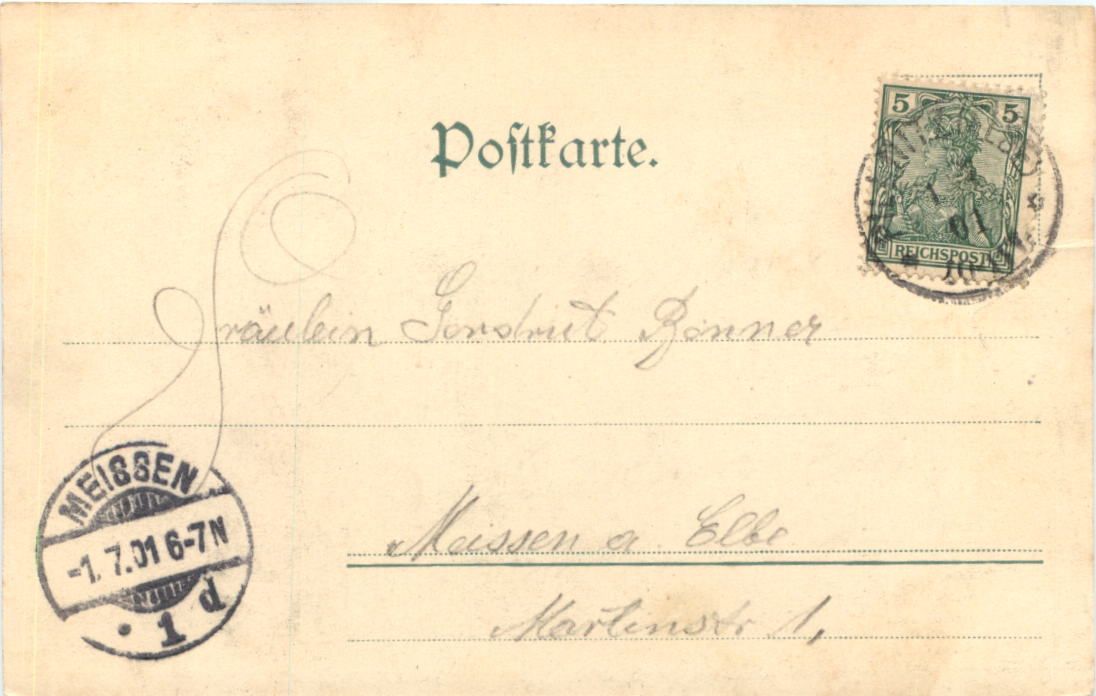 Postkarte.
5 5
REICHSPOST
01
Fräulein Gerdrut Bönner
Meissen a. Elbe
Martinstr 1,
MEISSEN
-1.7.01 6-7N
1 d